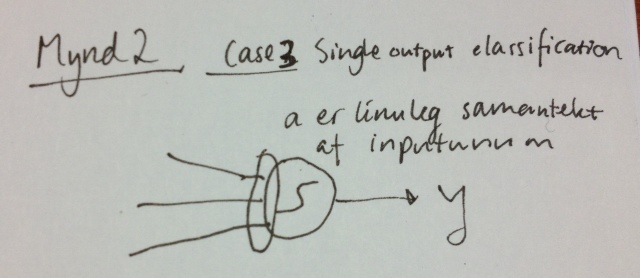 Mynd 2 Case 3 Single output classification
a er línuleg samantekt
af inputunum
y